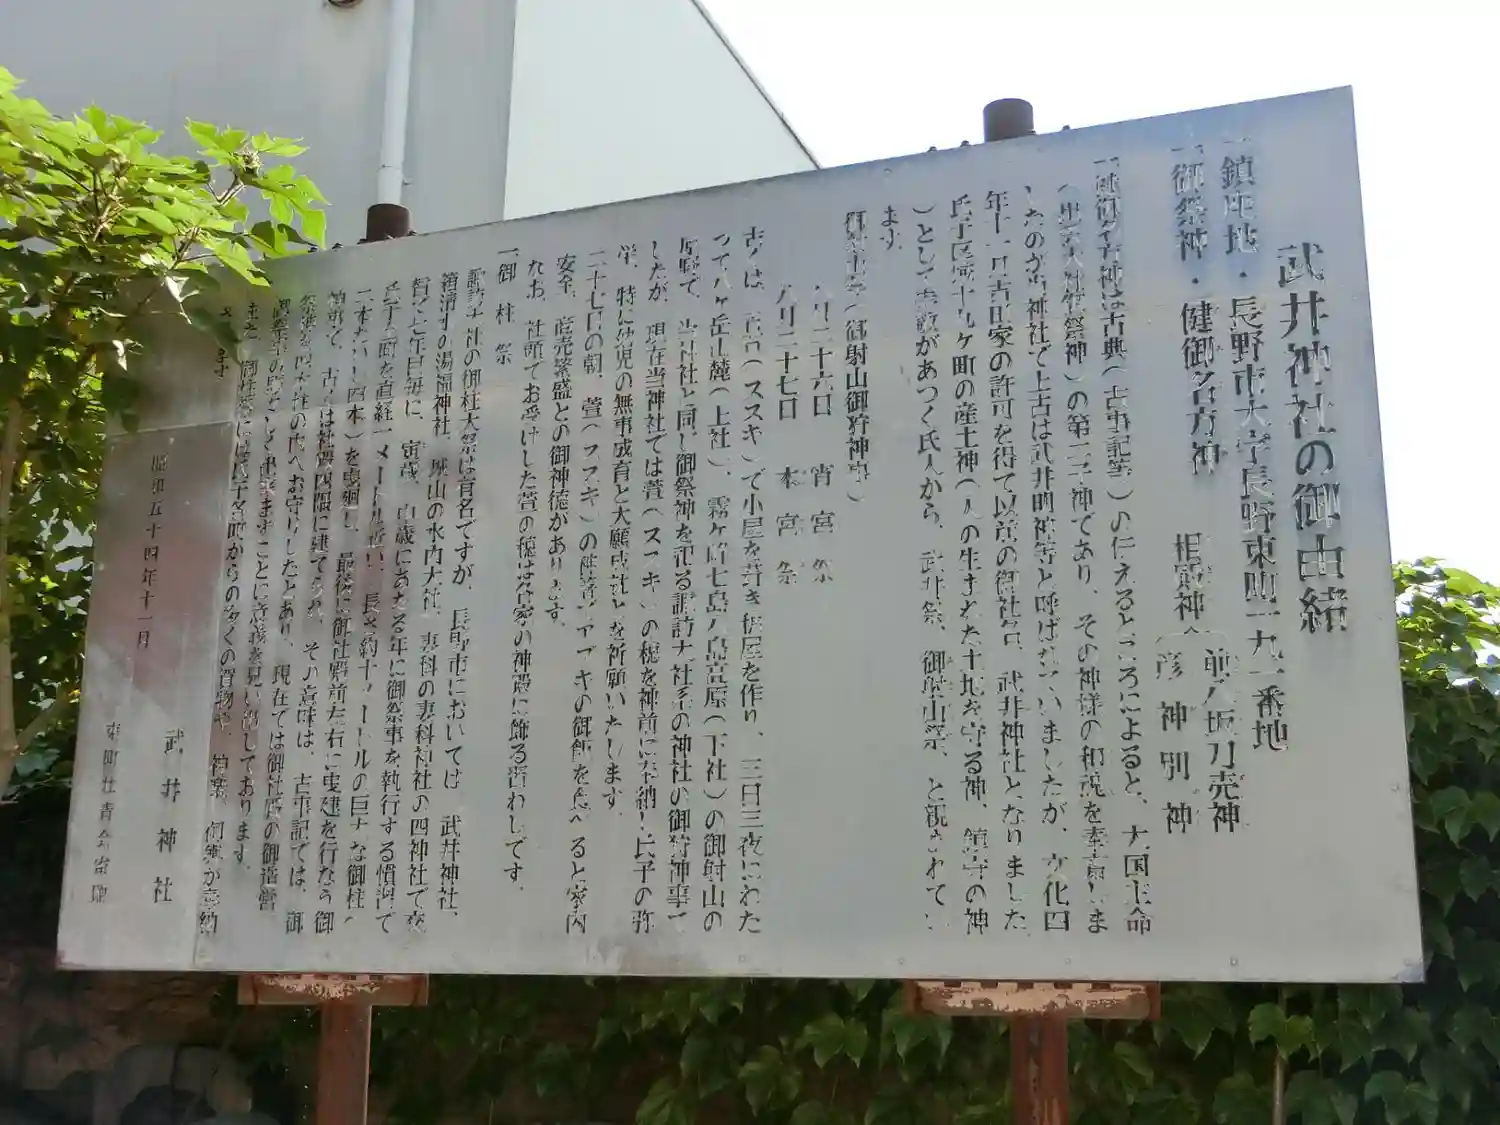 武井神社の御由緒
一鎮座地・長野市大字長野東町二九一番地
一御祭神・健御名方神 相殿神 前八坂刀売神
彦神別神
健御名方神は古典(古事記等)の伝えるところによると、大国主命
(出雲大社御祭神)の第二子神であり、その神様の和魂を奉斎しま
したのが当神社で上古は武井明神等と呼ばれていましたが、文化四
年十一月吉田家の許可を得て以前の御社名、武井神社となりました
氏子区域十九ヶ町の産土神(人の生まれた土地を守る神、鎮守の神
)として崇敬があつく氏人から、武井祭、御射山祭、と親まれてい
ます
御射山祭(御射山御狩神事)
八月二十六日 宵宮祭
八月二十七日 本宮祭
古くは、萱(ススキ)で小屋を葺き仮屋を作り、三日三夜にわた
って八ヶ岳山麓(上社)、霧ヶ峰七島八島高原(下社)の御射山の
原野で、当神社と同じ御祭神を祀る諏訪大社系の神社の御狩神事で
したが、現在当神社では萱(ススキ)の穂を神前に奉納し氏子の弥
栄、特に幼児の無事成育と大願成就とを祈願いたします。
二十七日の朝、萱(ススキ)の
安全、商売繁盛との御神徳があります。
なお、社頭でお受けした萱の穂は各家の神殿に飾る習わしです。
一御柱祭
諏訪大社の御柱大祭は有名ですが、長野市においては、武井神社、
箱清水の湯福神社、城山の水内大社、妻科の妻科神社の四神社で交
智で七年目毎に、寅歳、申歳にあたる年に御祭事を執行する慣習で
氏子各町を直経一メートル近い、長さ約十メートルの巨大な御柱(
二本ないし四本)を曳廻し、最後に御社殿前左右に曳建を行なう御
神事で、古くは社殿四隅に建てられ、その意味は、古事記では、御
祭神を四本柱の内へお守りしたとあり、現在では御社殿の御造営
また、御柱祭には氏子各町からの多くの賀物や、神楽、御輿が奉納
されます
昭和五十四年十一月
武井神社
東町壮青会寄贈